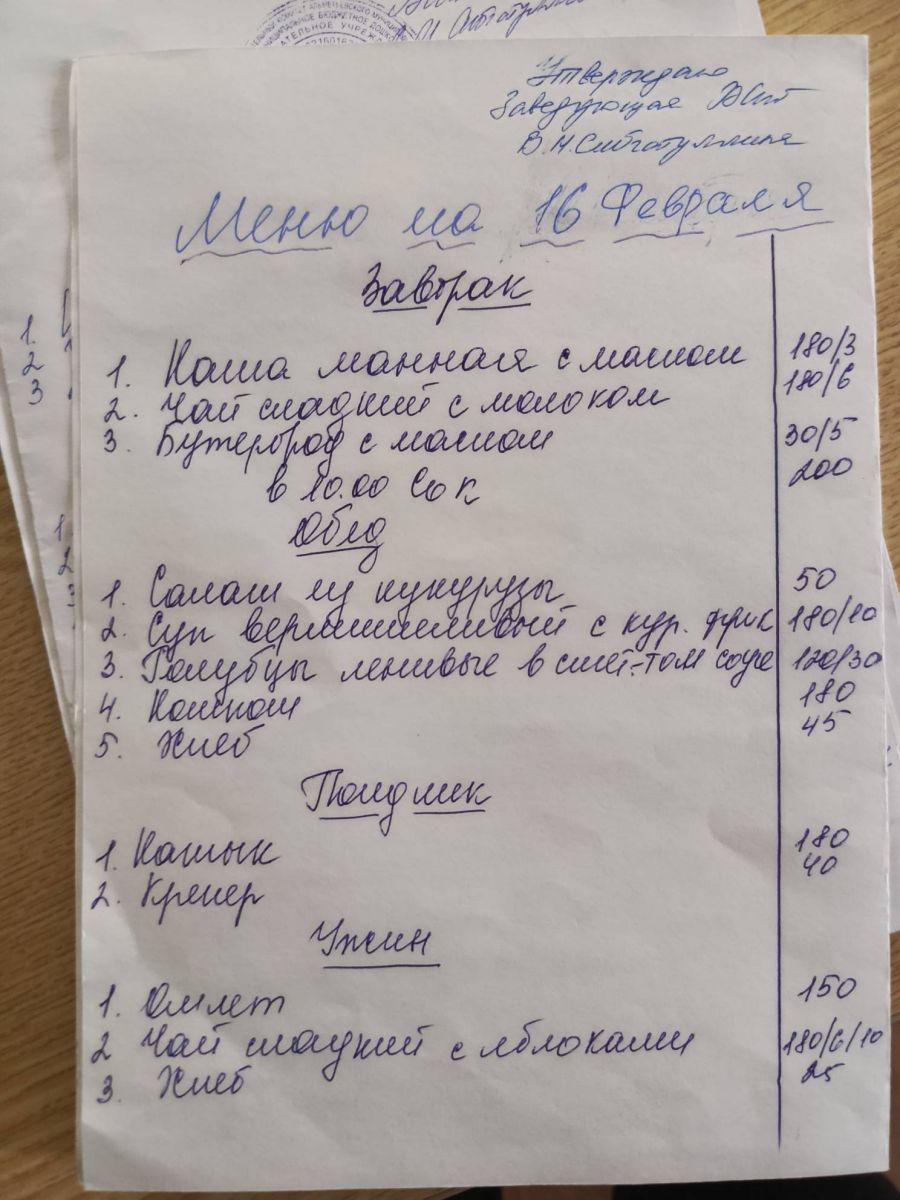 ТЕЛЬНЫЙ КОМИТЕТ АЛЬМЕТЬЕВСКОГО МУНИЦИП
МУНИЦИПАЛЬНОЕ БЮДЖЕТНОЕ ДОШКО
АТЕЛЬНОЕ УЧРЕЖ
Утверждаю
Заведующая
В.Н.Сибгатуллина
Меню на 16 Февраля
Завтрак
1. Каша манная с маслом 180/3
2. Чай сладкий с молоком 180/6
3. Бутерброд с маслом 30/5
в 10.00 Сок 200
Обед
1. Салат из кукурузы 50
2. Суп вермишелевый с кур. фрик 180/10
3. Голубцы ленивые в смет-том соусе 120/30
4. Компот 180
5. Хлеб 45
Полдник
1. Катык 180
2. Крекер 40
Ужин
1. Омлет 150
2 Чай сладкий с яблоками 180/6/10
3. Хлеб 25
1.
2
3